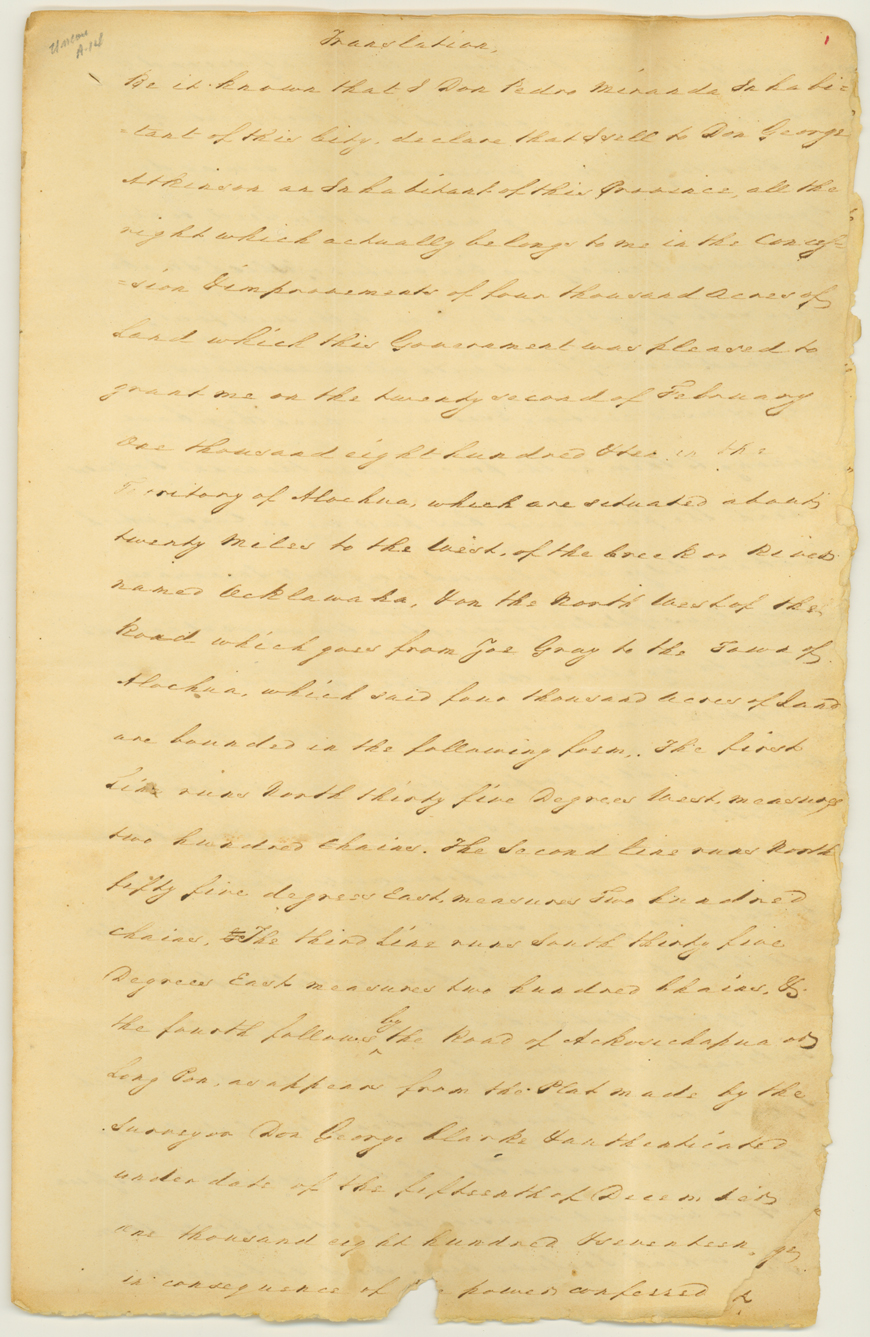 Translation,
1
A-14
Be it known that I Don Pedro Miranda Inhabi=
=tant of this City, declare that I sell to Don George
Atkinson an Inhabitant of this Province, all the
right which actually belongs to me in the Conces=
=sion & improvements of four thousand acres of
Land which this Government was pleased to
grant me on the twenty second of February
one thousand eight hundred & ten in the
Territory of Alochua, which are situated about
twenty Miles to the West, of the Creek or River
named Ocklawaha, & on the North West of the
Road which goes from Joe Gray to the Town of
Alochua, which said four thousand acres of land
are bounded in the following form,. The first
Line runs North thirty five Degrees West, measures
two hundred Chains. The Second line runs North
fifty five degrees East, measures Two hundred
chains, The third Line runs South thirty five
Degrees East measures two hundred Chains, &
the fourth follows by the Road of Ackosichapua or
Long Pon, as appears from the Plat made by the
Surveyor Don George Clarke & authenticated
under date of the fifteenth of December
one thousand eight hundred & seventeen,
in consequence of the power conferred